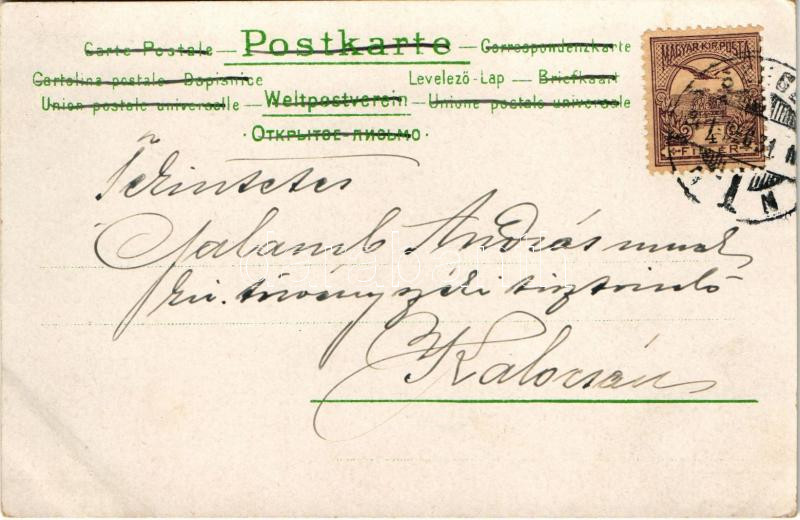 Carte Postale — Postkarte — Correspondenzkarte
Cartolina postale Dopisnice Levelező-Lap — Briefkaart
Union postale universelle — Weltpostverein — Unione postale universale
· Открытое письмо ·
MAGYAR KIR. POSTA
FILLÉR
Tekintetes
Galamb András urnak
kir. törvényszéki tisztviselő
Kalocsán